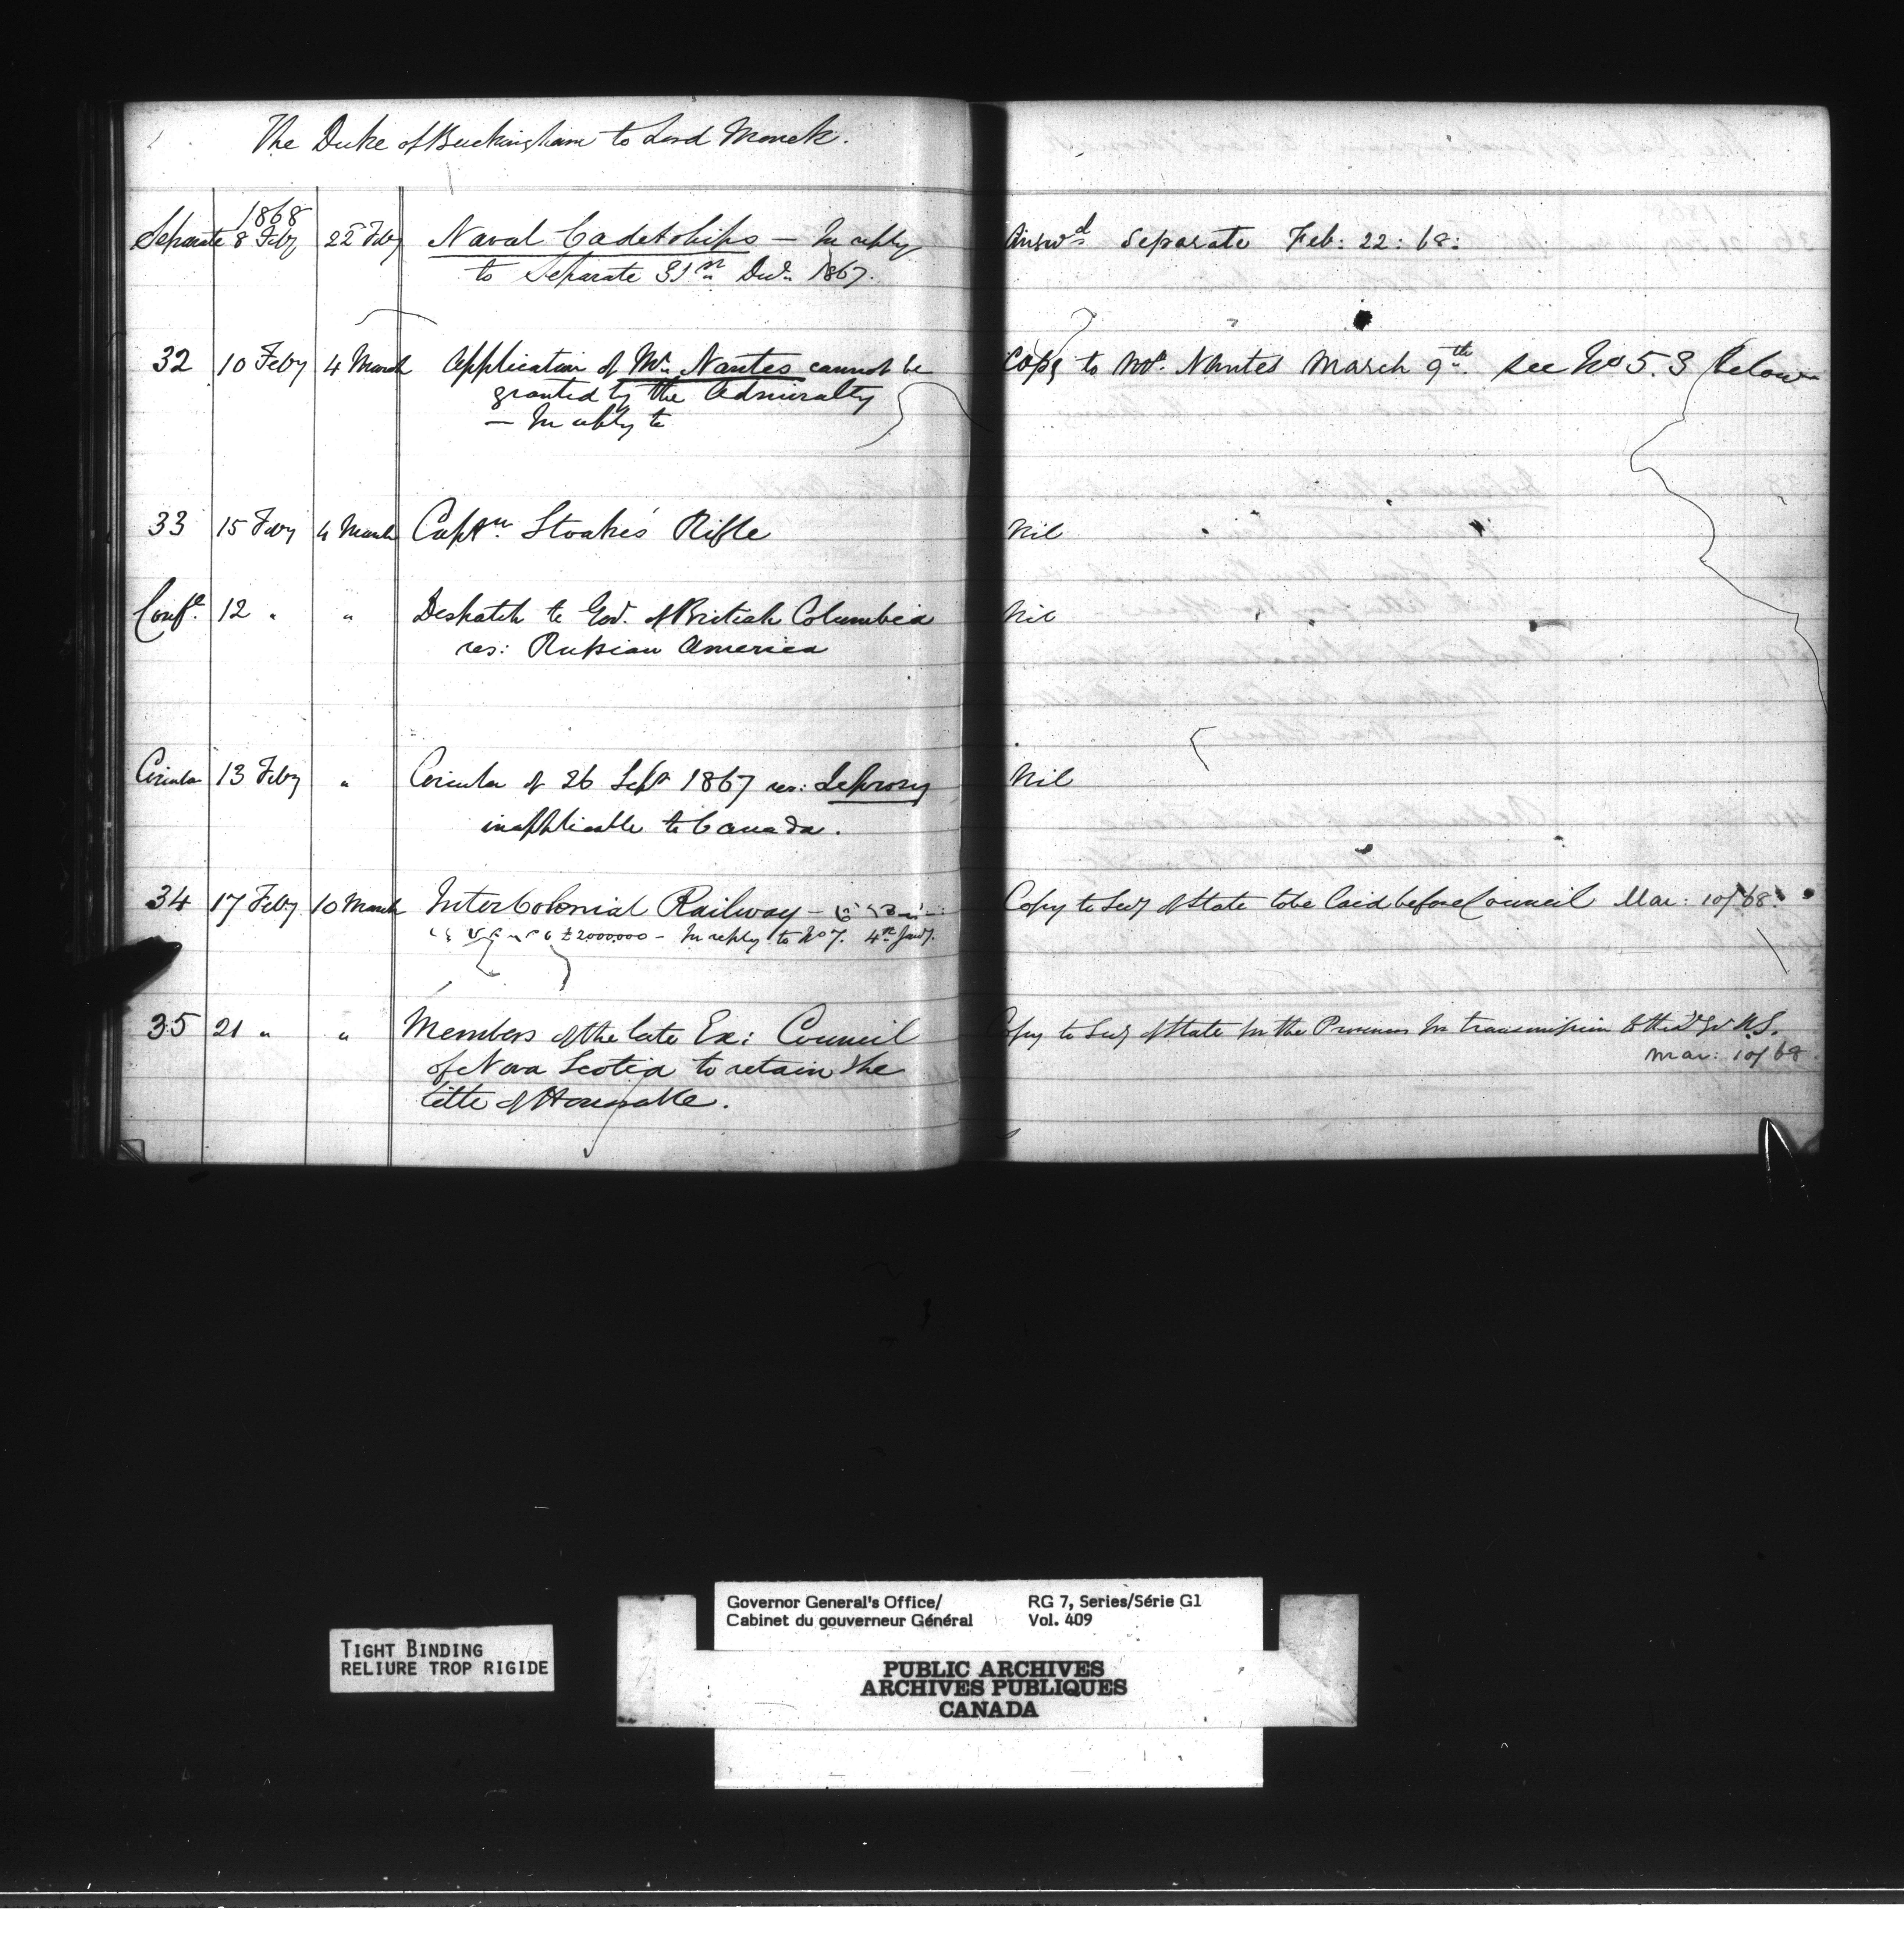 The Duke of Buckingham to Lord Monck.
1868
Separate 8 Feby 22 Feby Naval Cadetships — In reply Answd Separate Feb: 22: 68:
to Separate 31st Decr 1867.
32 10 Feby 4 March Application of Mr. Nantes cannot be Copy to Mr. Nantes March 9th. See No 53 below
granted by the Admiralty
— In reply to
33 15 Feby 4 March Captn. Stoakes' Rifle Nil
Conf. 12 " " Despatch to Gov. of British Columbia Nil
res: Russian America
Circular 13 Feby " Circular of 26 Sept 1867 res: Leprosy Nil
inapplicable to Canada.
34 17 Feby 10 March InterColonial Railway — Copy to Secy of State to be laid before Council Mar: 10/68.
£2000000 — In reply to No 7. 4th Jany.
35 21 " " Members of the late Ex: Council Copy to Secy of State for the Provinces for transmission to the Lt Gov N.S.
of Nova Scotia to retain the Mar: 10/68.
title of Honorable.
Governor General's Office/ RG 7, Series/Série G1
Cabinet du gouverneur Général Vol. 409
TIGHT BINDING
RELIURE TROP RIGIDE
PUBLIC ARCHIVES
ARCHIVES PUBLIQUES
CANADA